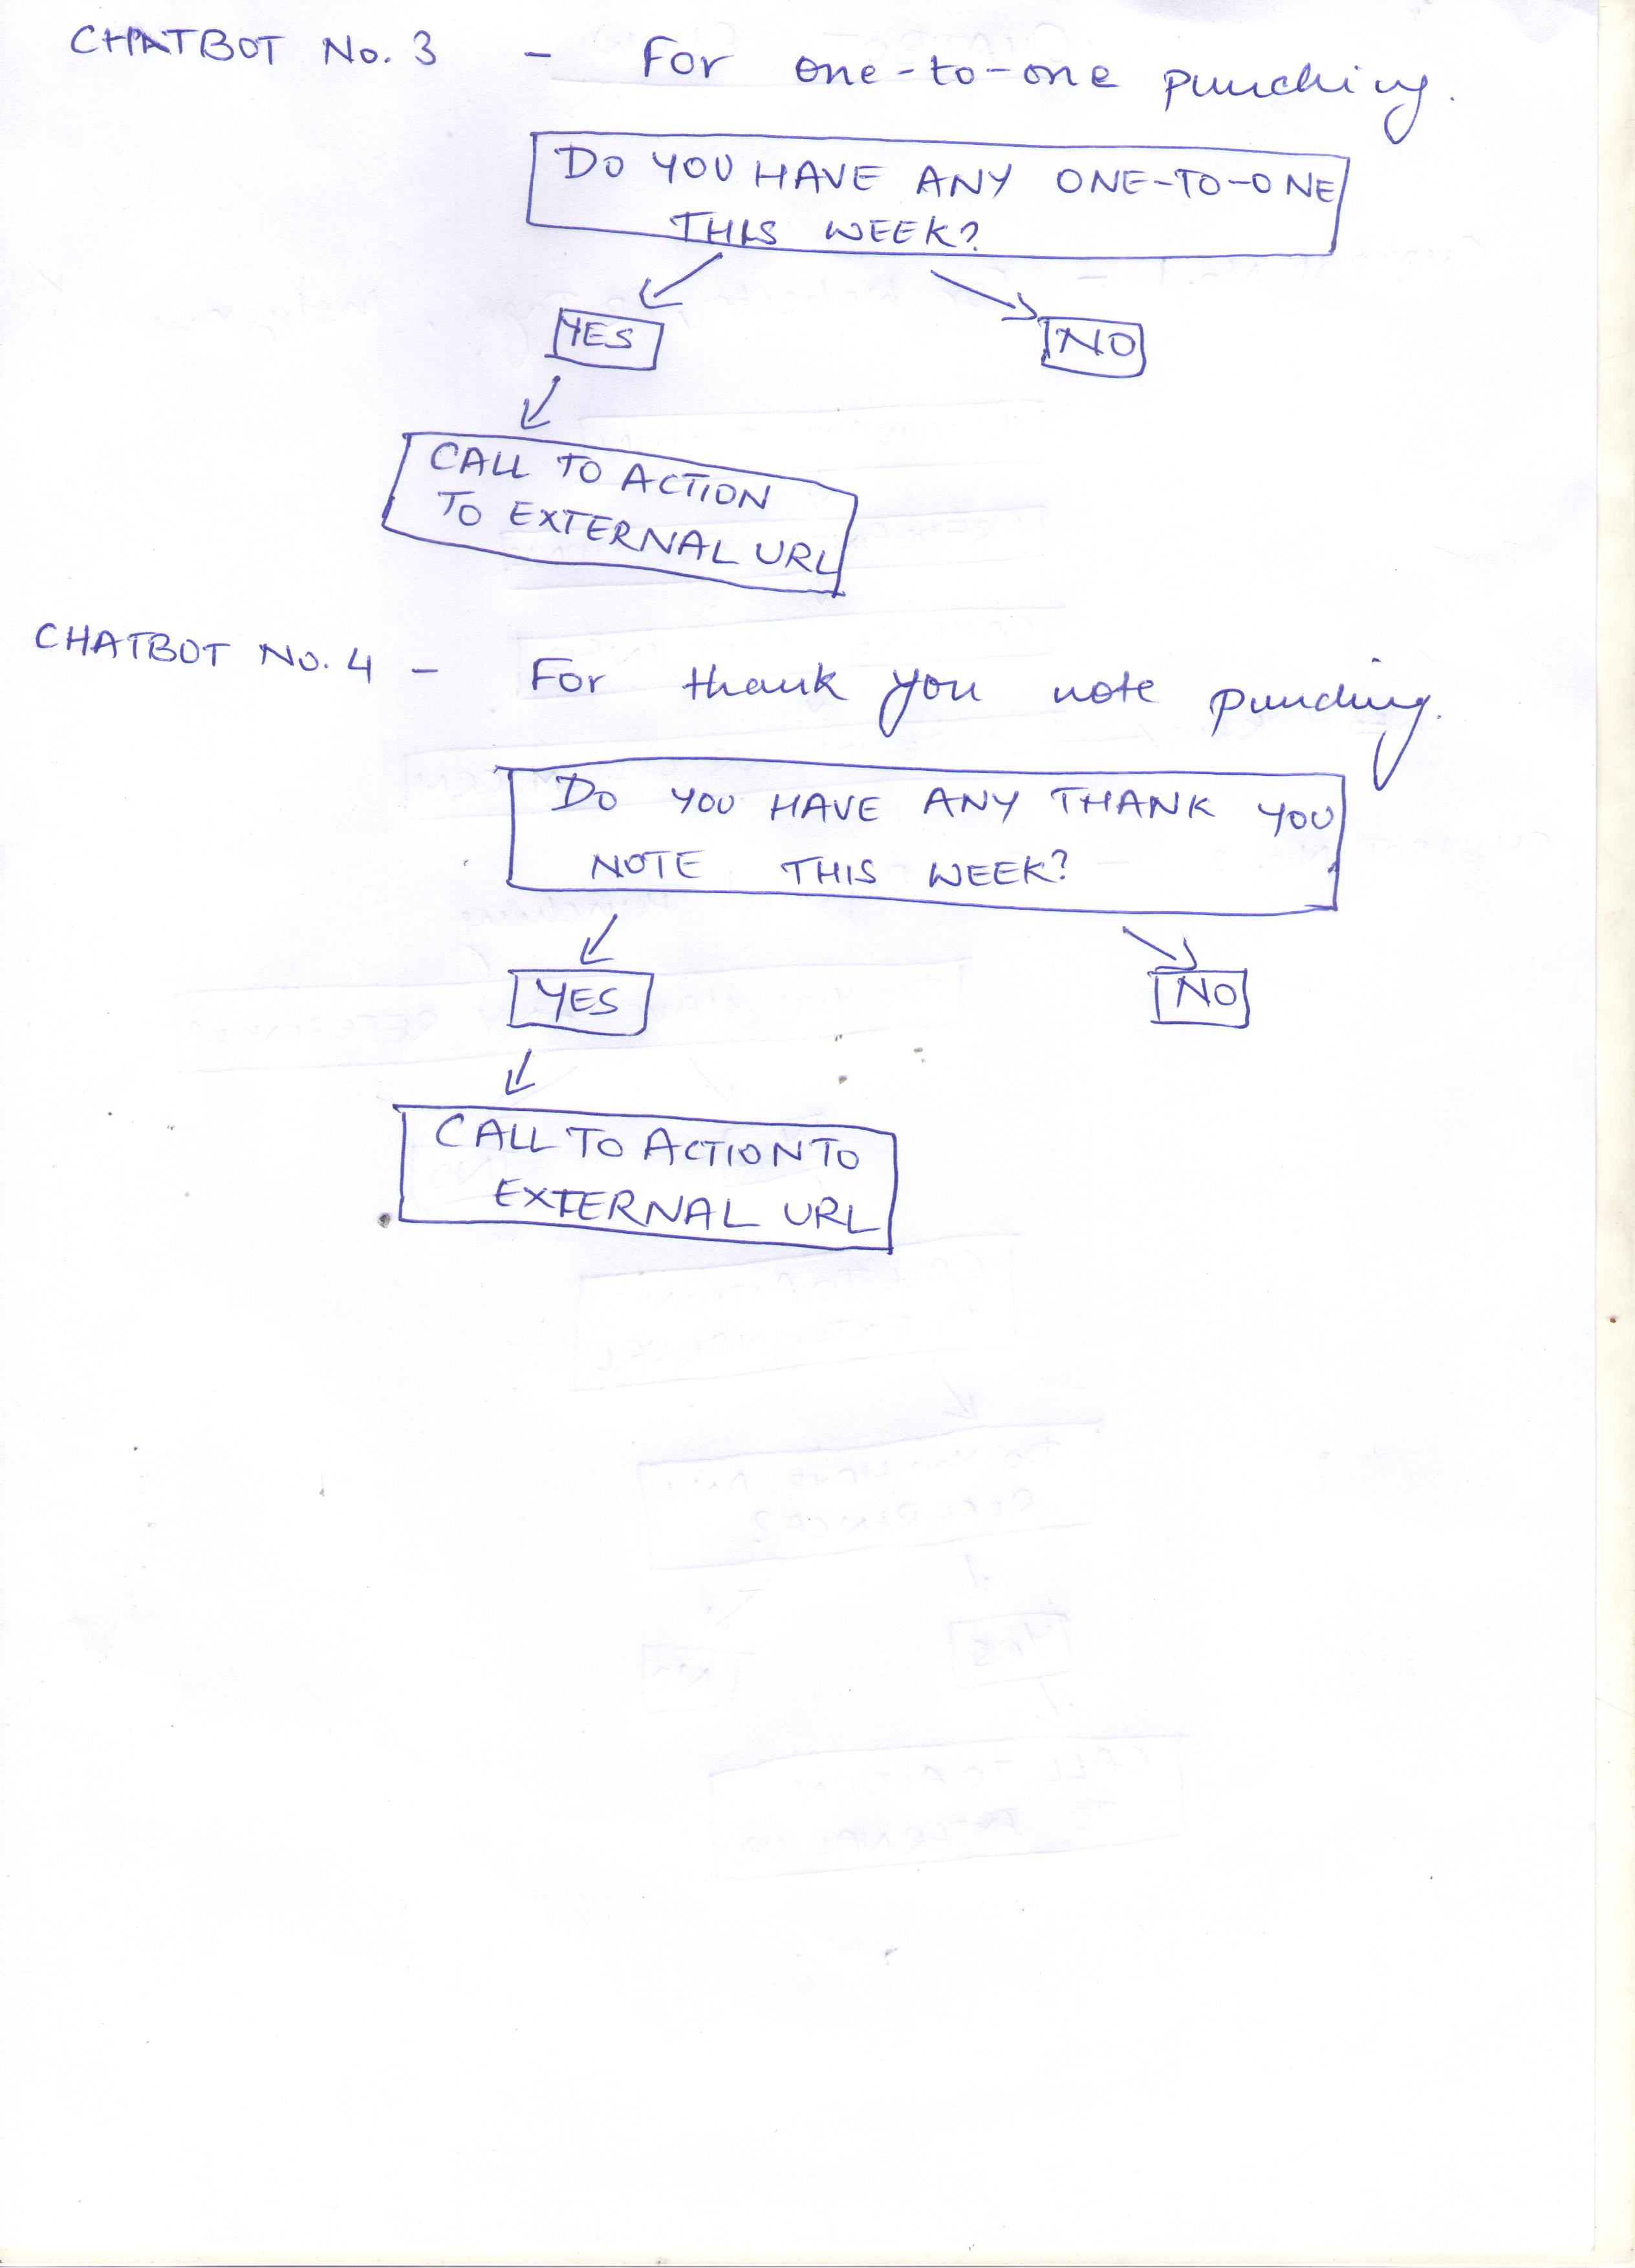 CHATBOT No. 3 - For one-to-one punching.
DO YOU HAVE ANY ONE-TO-ONE
THIS WEEK?
YES
NO
CALL TO ACTION
TO EXTERNAL URL
CHATBOT No. 4 - For thank you note punching.
DO YOU HAVE ANY THANK YOU
NOTE THIS WEEK?
YES
NO
CALL TO ACTION TO
EXTERNAL URL